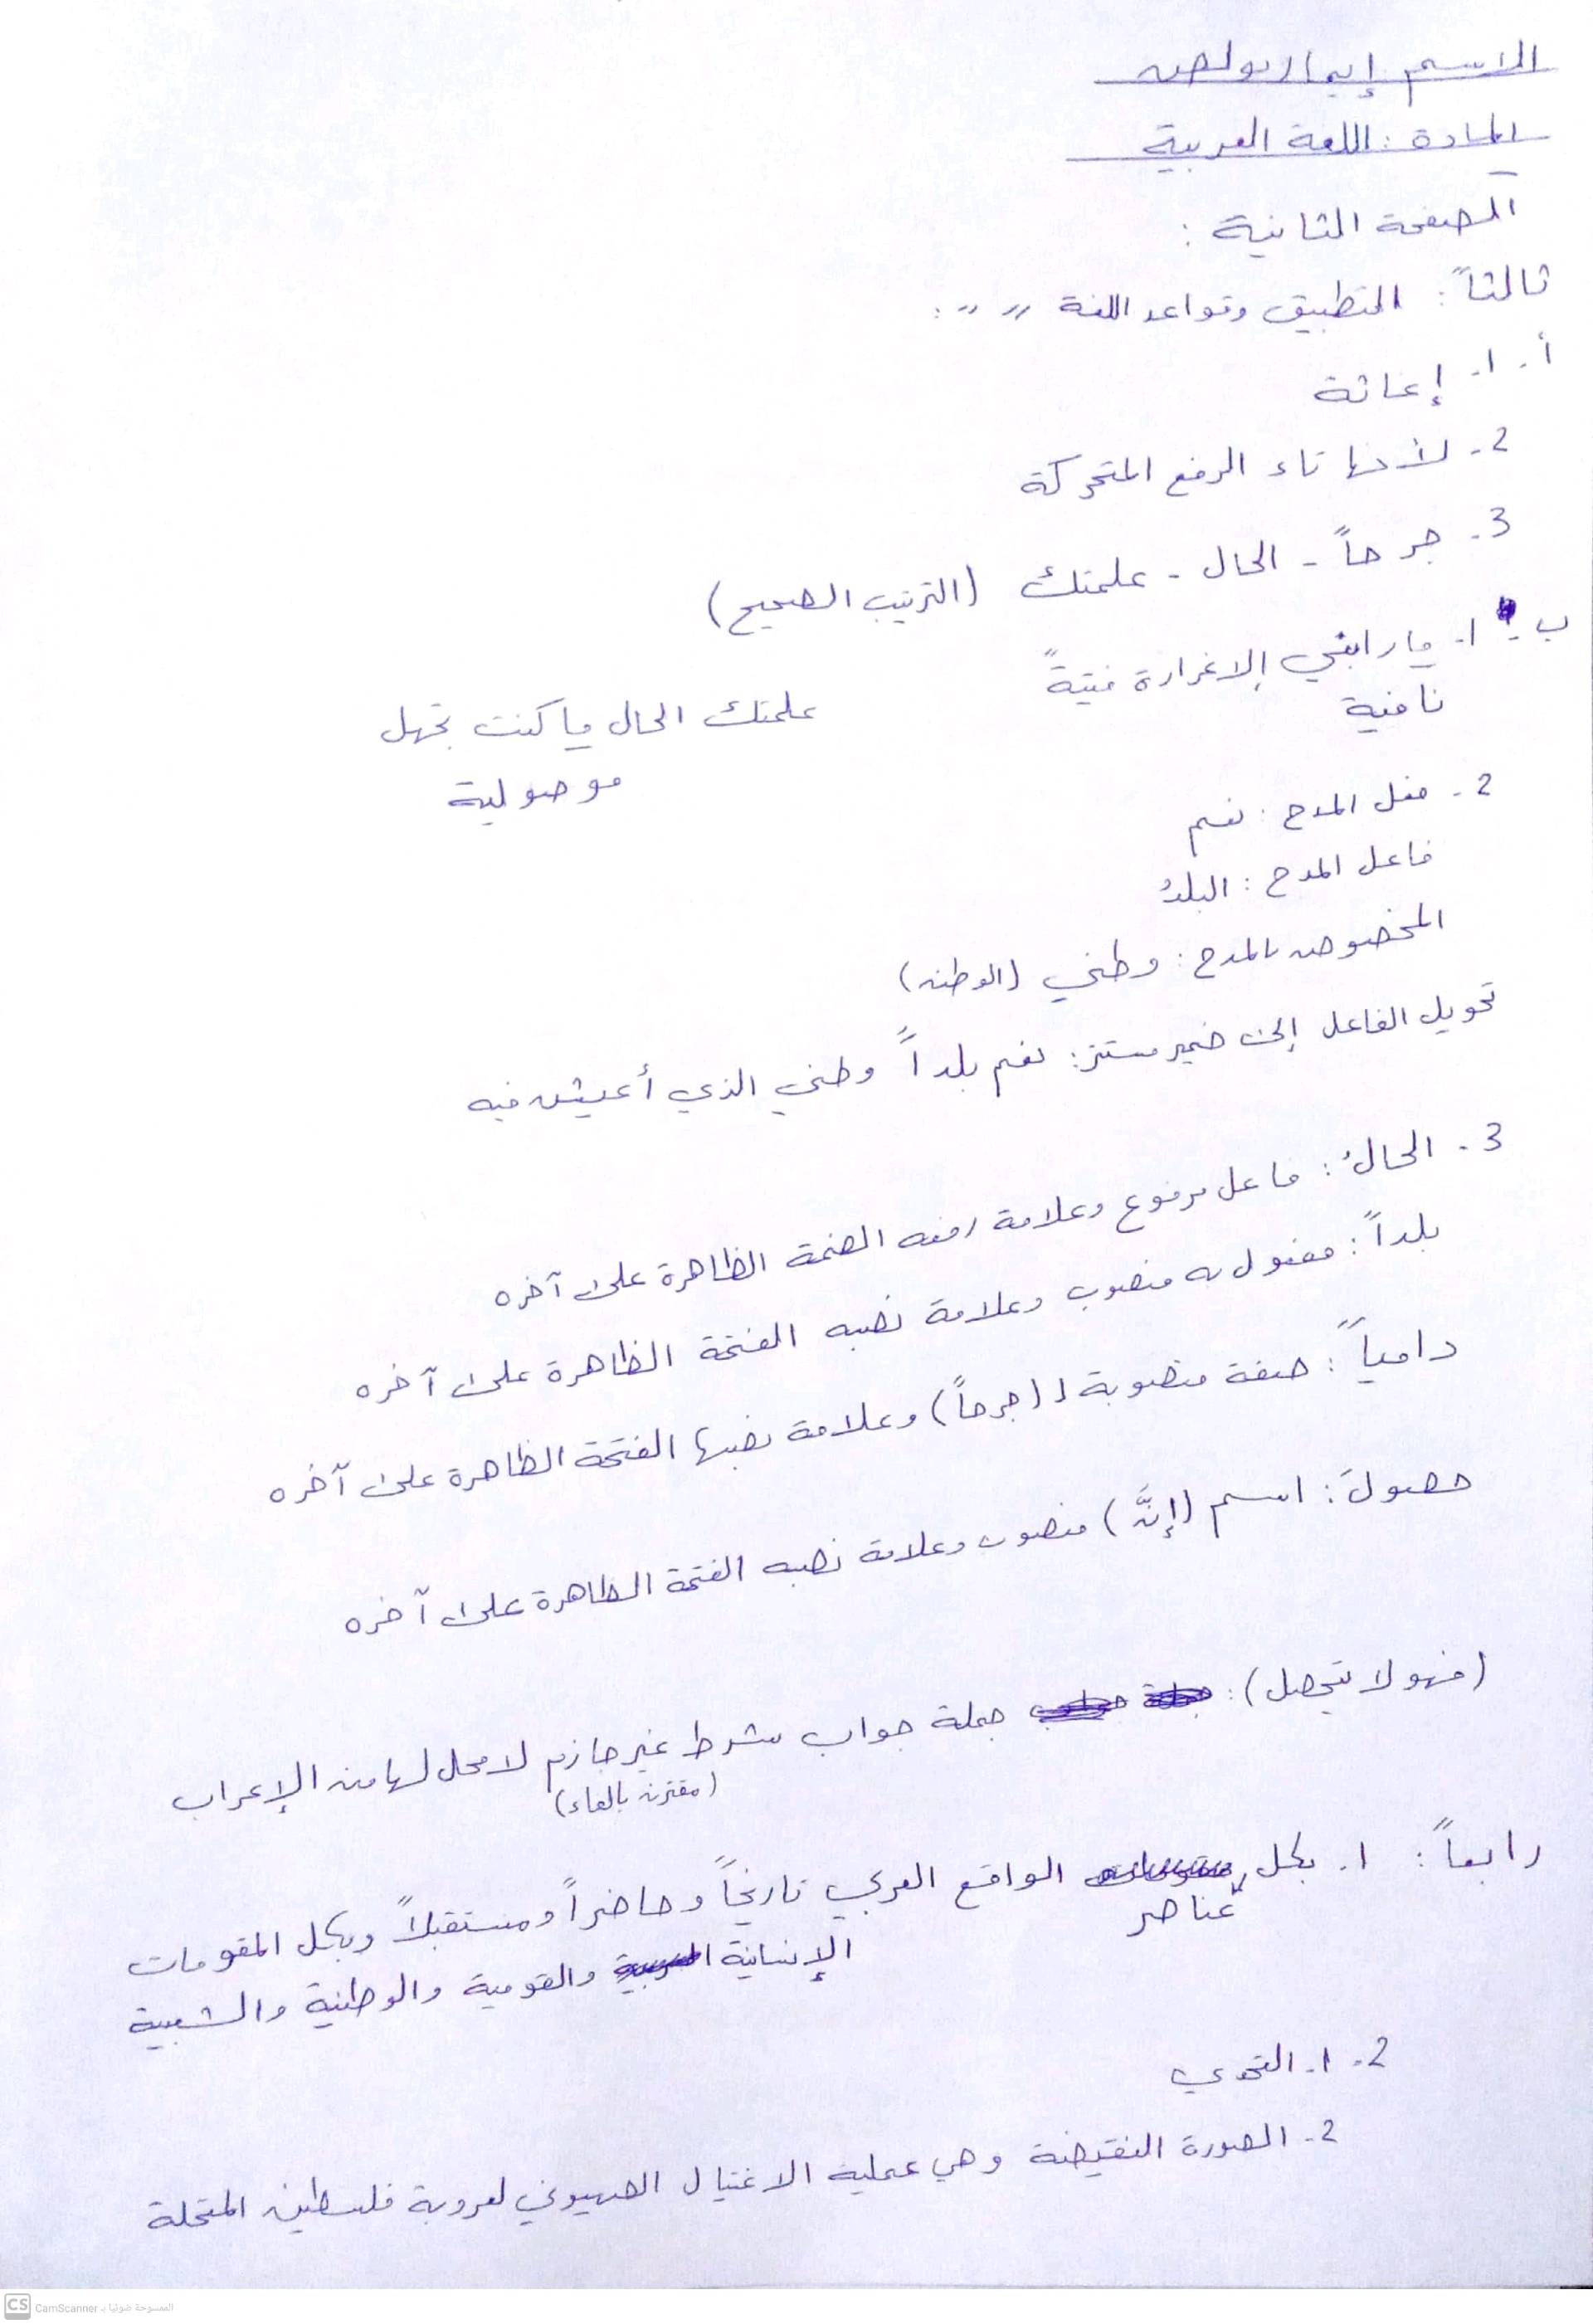 الاسم إيمار بولص
المادة : اللغة العربية
الصفحة الثانية :
ثالثاً : التطبيق وقواعد اللغة " " :
أ. 1. إغاثة
2. لأنها تاء الرفع المتحركة
3. جرحاً - الحال - علمتك (الترتيب الصحيح)
ب - 1. ما رابني إلا غرارة فتيةً
نافية
علمتك الحال ما كنت تجهل
موصولية
2. فعل المدح : نعم
فاعل المدح : البلدُ
المخصوص بالمدح : وطني (الوطن)
تحويل الفاعل إلى ضمير مستتر : نعم بلداً وطني الذي أعيش فيه
3. الحالُ : فاعل مرفوع وعلامة رفعه الضمة الظاهرة على آخره
بلداً : مفعول به منصوب وعلامة نصبه الفتحة الظاهرة على آخره
دامياً : صفة منصوبة لـ (جرحاً) وعلامة نصبها الفتحة الظاهرة على آخره
حصولَ : اسم (إنَّ) منصوب وعلامة نصبه الفتحة الظاهرة على آخره
(فهو لا يتحصل) : جملة جواب شرط غير جازم لا محل لها من الإعراب
(مقترن بالفاء)
رابعاً : 1. بكل الواقع العربي تاريخاً وحاضراً ومستقبلاً وبكل المقومات
عناصر
الإنسانية والقومية والوطنية والشعبية
2. 1. التحدي
2. الصورة النقيضة وهي عملية الاغتيال الصهيوني لعروبة فلسطين المحتلة
CS CamScanner الممسوحة ضوئيا بـ